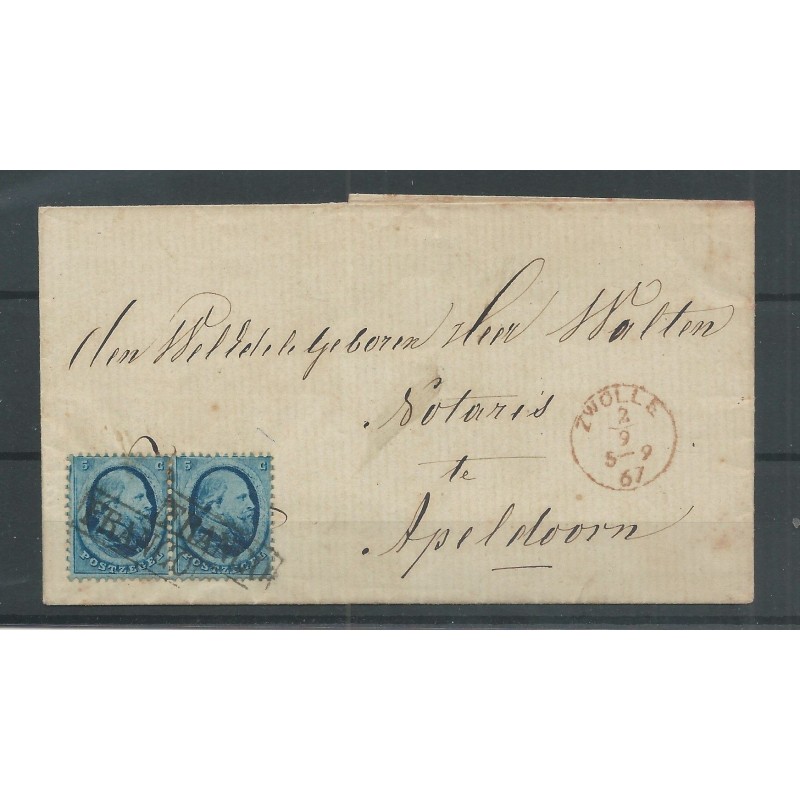 den Weledelegeboren Heer Walten
Notaris
te
Apeldoorn
ZWOLLE
2
9
5-9
67
5 C
5 C
FRANCO
POSTZEGEL
POSTZEGEL